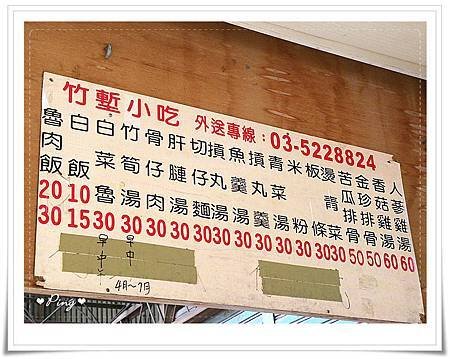 竹塹小吃 外送專線：03-5228824
魯肉飯 20 30
白飯 10 15
白菜魯 30
竹筍湯 30
骨仔肉 30
肝腱湯 30
切仔麵 30
摃丸湯 30
魚羹湯 30
摃丸羹 30
青菜湯 30
米粉 30
板條 30
燙青菜 30
苦瓜排骨 50
金珍排骨 50
香菇雞湯 60
人蔘雞湯 60
早中
早中
4月~7月
♥Ping♥